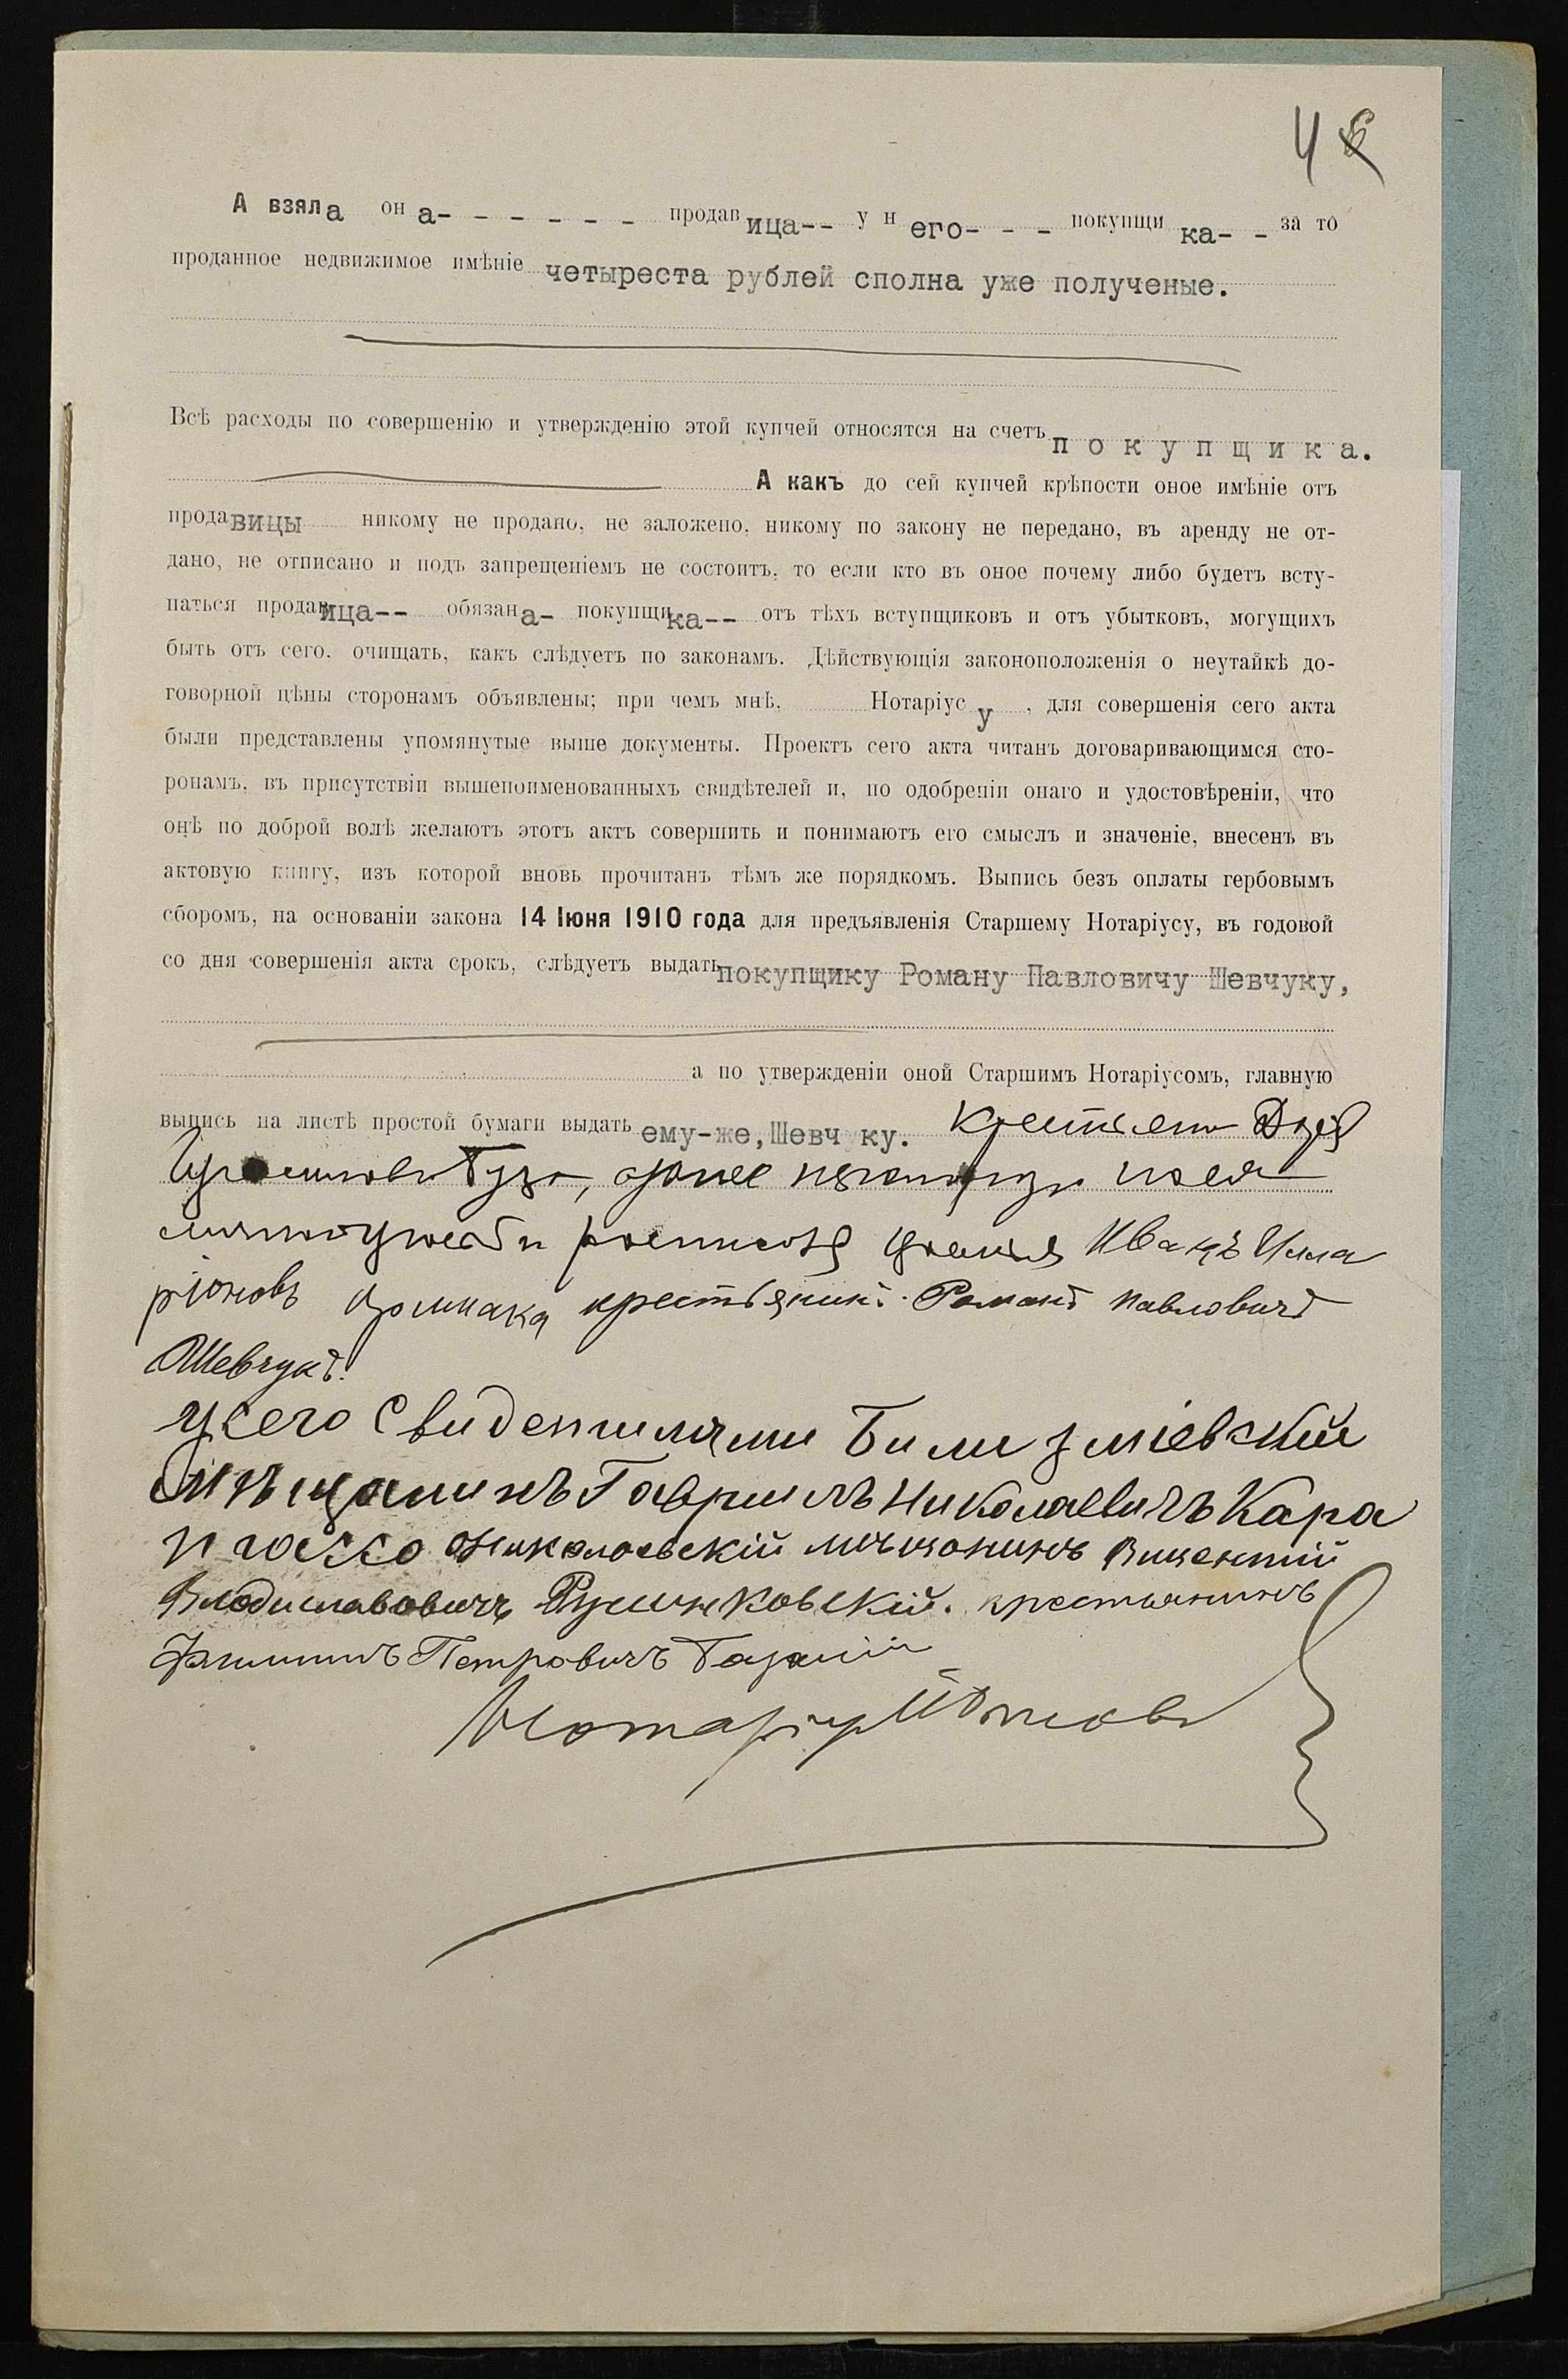 4
А взяла она- - - - - - - продавица-- у него- - - покупщика- - за то
проданное недвижимое имѣніе четыреста рублей сполна уже полученые.
Всѣ расходы по совершенію и утвержденію этой купчей относятся на счетъ покупщика.
А какъ до сей купчей крѣпости оное имѣніе отъ
продавицы никому не продано, не заложено, никому по закону не передано, въ аренду не от-
дано, не отписано и подъ запрещеніемъ не состоитъ, то если кто въ оное почему либо будетъ всту-
паться продавица-- обязана- покупщика-- отъ тѣхъ вступщиковъ и отъ убытковъ, могущихъ
быть отъ сего, очищать, какъ слѣдуетъ по законамъ. Дѣйствующія законоположенія о неутайкѣ до-
говорной цѣны сторонамъ объявлены; при чемъ мнѣ, Нотаріусу, для совершенія сего акта
были представлены упомянутые выше документы. Проектъ сего акта читанъ договаривающимся сто-
ронамъ, въ присутствіи вышепоименованныхъ свидѣтелей и, по одобреніи онаго и удостовѣреніи, что
онѣ по доброй волѣ желаютъ этотъ актъ совершить и понимаютъ его смыслъ и значеніе, внесенъ въ
актовую книгу, изъ которой вновь прочитанъ тѣмъ же порядкомъ. Выпись безъ оплаты гербовымъ
сборомъ, на основаніи закона 14 Іюня 1910 года для предъявленія Старшему Нотаріусу, въ годовой
со дня совершенія акта срокъ, слѣдуетъ выдать покупщику Роману Павловичу Шевчуку,
а по утвержденіи оной Старшимъ Нотаріусомъ, главную
выпись на листѣ простой бумаги выдать ему-же, Шевч ку.
Иванъ Илла
ріоновъ крестьянинъ Романъ Павловичъ
Шевчукъ.
у сего Свидетилями
Мѣщанинъ Гавриилъ Николаевичъ Кара
Николаевскій мѣщанинъ Викентій
Владиславовичъ крестьянинъ
Филиппъ Петровичъ
Нотаріусъ